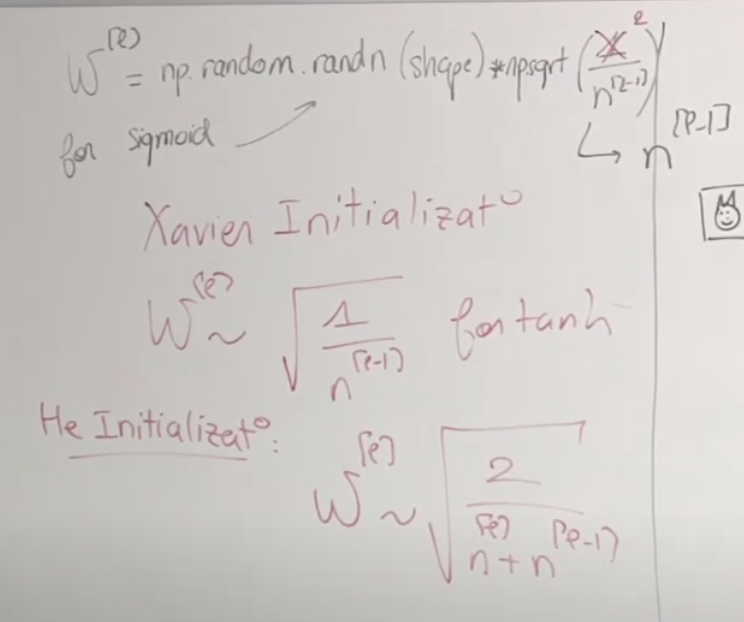 W^[l] = np.random.randn (shape) * npsqrt (1/n^[l-1]) 2
for sigmoid
↳ n^[l-1]
Xavier Initializat°
W^[l] ~ √(1/n^[l-1]) for tanh
He Initializat°:
W^[l] ~ √(2/(n^[l] + n^[l-1]))